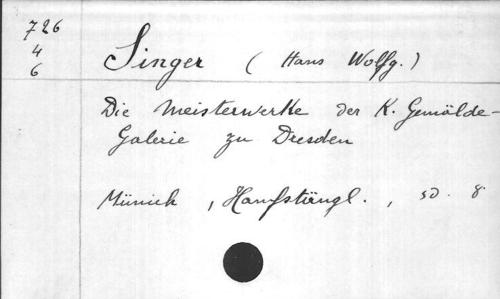 726
4
6
Singer ( Hans Wolfg.)
Die Meisterwerke der K. Gemälde-
Galerie zu Dresden
Münich , Hanfstängl. , sd. 8